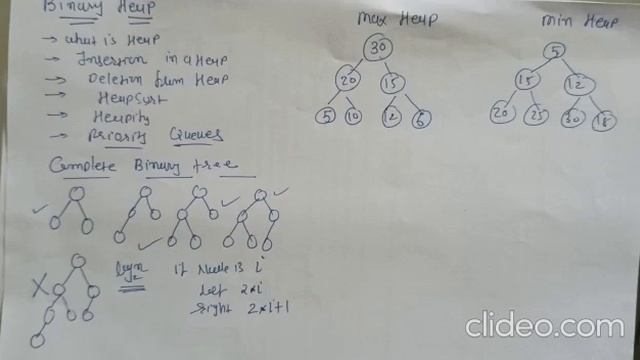 Binary Heap
→ what is Heap
→ Insertion in a Heap
→ Deletion from Heap
→ HeapSort
→ Heapify
→ Priority Queues
Complete Binary tree
if Node is i
left 2*i
right 2*i+1
max Heap
30
20 15
5 10 12 6
min Heap
5
15 12
20 25 30 18
clideo.com